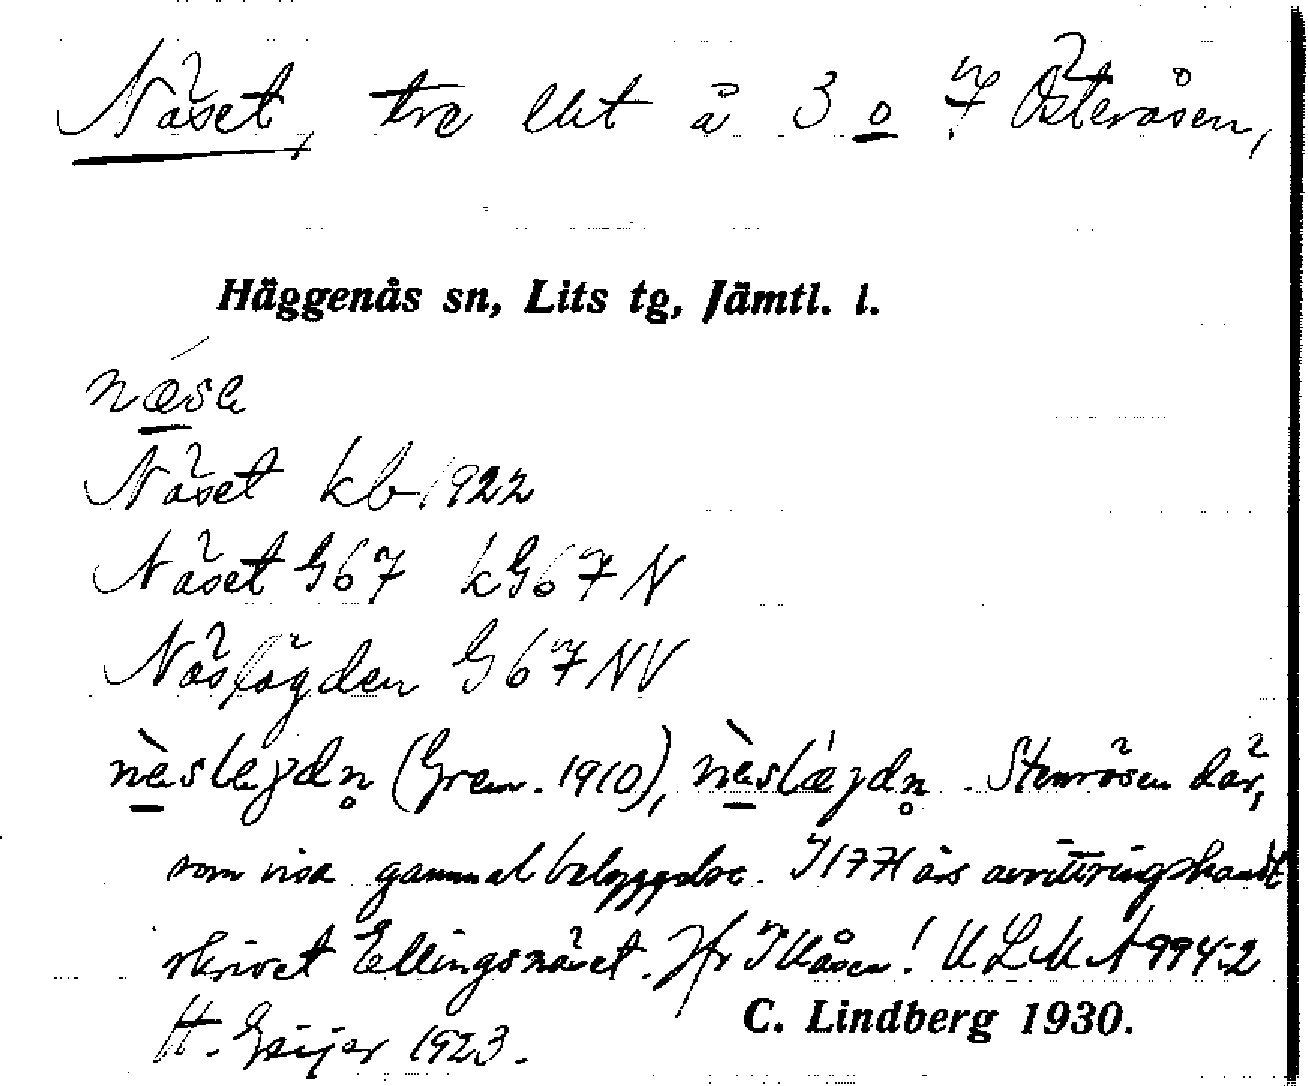 Näset, tre lht å 3 o 7 Österåsen,
Häggenås sn, Lits tg, Jämtl. l.
næ̀se
Näset kb 1922
Näset G67 kG67N
Näslägden G67NV
nèslejdn̥ (Gren. 1910), nèslǽjdn̥. Stenrösen där,
som visa gammal bebyggelse. I 1771 års avvittringshandl
skrivet Ellingsnäset. Jfr Ilåsen! ULMA 994:2
H. Geijer 1923.
C. Lindberg 1930.